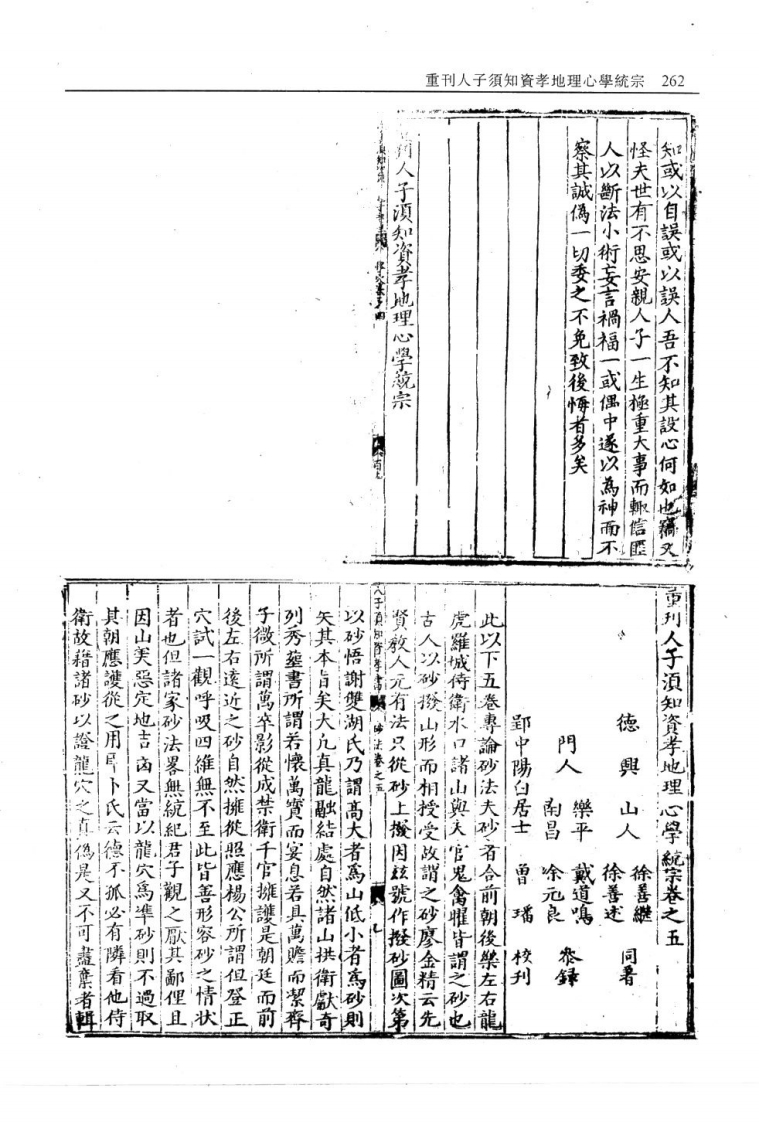 重刊人子須知資孝地理心學統宗 262
知或以自誤或以誤人吾不知其設心何如也竊又
怪夫世有不思安親人子一生極重大事而輙信匪
人以斷法小術妄言禍福一或偶中遂以為神而不
察其誠偽一切委之不免致後悔者多矣
刋人子須知資孝地理心學統宗
重刋人子須知資孝地理心學統宗卷之五
德興山人 徐善繼 徐善述 同著
門人 樂平 戴道鳴 南昌 余元良 叅錄
郢中陽白居士 曾璠 校刋
此以下五卷專論砂法夫砂者合前朝後樂左右龍
虎羅城侍衛水口諸山與夫官鬼禽曜皆謂之砂也
古人以砂撥山形而相授受故謂之砂廖金精云先
賢教人元有法只從砂上撥因玆號作撥砂圖次第
人子須知資孝書 砂法卷之五
以砂悟謝雙湖氏乃謂高大者爲山低小者爲砂則
失其本旨矣大凢真龍融結處自然諸山拱衛獻奇
列秀塟書所謂若懷萬寶而宴息若具萬膳而潔齊
子微所謂萬卒影從成禁衛千官擁護是朝廷而前
後左右遠近之砂自然擁從照應楊公所謂但登正
穴試一觀呼吸四維無不至此皆善形容砂之情状
者也但諸家砂法畧無統紀君子觀之厭其鄙俚且
因山美惡定地吉凶又當以龍穴爲準砂則不過取
其朝應護從之用耳卜氏云德不孤必有隣看他侍
衛故藉諸砂以證龍穴之真偽是又不可盡棄者輯